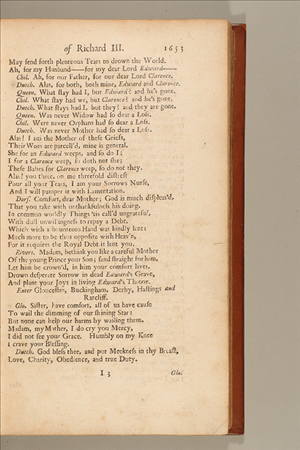 of Richard III. 1653
May send forth plenteous Tears to drown the World.
Ah, for my Husband—for my dear Lord Edward—
Chil. Ah, for our Father, for our dear Lord Clarence.
Dutch. Alas, for both, both mine, Edward and Clarence.
Queen. What stay had I, but Edward? and he's gone.
Chil. What stay had we, but Clarence? and he's gone.
Dutch. What stays had I, but they? and they are gone.
Queen. Was never Widow had so dear a Loss.
Chil. Were never Orphans had so dear a Loss.
Dutch. Was never Mother had so dear a Loss.
Alas! I am the Mother of these Griefs,
Their Woes are parcell'd, mine is general.
She for an Edward weeps, and so do I;
I for a Clarence weep, so doth not she;
These Babes for Clarence weep, so do not they.
Alas! you three, on me threefold distrest
Pour all your Tears, I am your Sorrows Nurse,
And I will pamper it with Lamentation.
Dors. Comfort, dear Mother; God is much displeas'd,
That you take with unthankfulness his doing.
In common worldly Things 'tis call'd ungrateful,
With dull unwillingness to repay a Debt,
Which with a bounteous Hand was kindly lent:
Much more to be thus opposite with Heav'n,
For it requires the Royal Debt it lent you.
Rivers. Madam, bethink you like a careful Mother
Of the young Prince your Son; send straight for him,
Let him be crown'd, in him your comfort lives.
Drown desperate Sorrow in dead Edward's Grave,
And plant your Joys in living Edward's Throne.
Enter Gloucester, Buckingham, Derby, Hastings and
Ratcliff.
Glo. Sister, have comfort, all of us have cause
To wail the dimming of our shining Star:
But none can help our harms by wailing them.
Madam, my Mother, I do cry you Mercy,
I did not see your Grace. Humbly on my Knee
I crave your Blessing.
Dutch. God bless thee, and put Meekness in thy Breast,
Love, Charity, Obedience, and true Duty.
I 3 Glo.